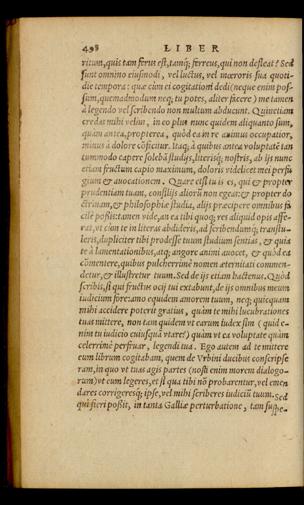 498 LIBER
ritum, quis tam ferus est, tamq; ferreus, qui non defleat? Sed
sunt omnino eiusmodi, vel luctus, vel mœroris sua quoti-
die tempora: quæ cùm ei cogitationi dedi (neque enim pos-
sum, quemadmodum neq; tu potes, aliter facere) me tamen
à legendo vel scribendo non multum abducunt. Quinetiam
credas mihi velim, in eo plus nunc quidem aliquanto sum,
quàm antea, propterea, quòd ea in re animus occupatior,
minus à dolore cōficitur. Itaq; à quibus antea voluptatē tan
tummodo capere solebā studijs, literisq; nostris, ab ijs nunc
etiam fructum capio maximum, doloris videlicet mei perfu
gium & auocationem. Quare etsi tu is es, qui & propter
prudentiam tuam, consilijs alioru non egeat: & propter do
ctrinam, & philosophiæ studia, alijs præcipere omnibus fa
cilè possis: tamen vide, an ea tibi quoq; res aliquid opis affe-
rat, vt cùm te in literas abdideris, ad scribendumq; transtu-
leris, dupliciter tibi prodesse tuum studium sentias, & quia
te à lamentationibus, atq; angore animi auocet, & quòd ea
cōmentere, quibus pulcherrimè nomen æternitati commen-
detur, & illustretur tuum. Sed de ijs etiam hactenus. Quòd
scribis, si qui fructus ocij tui extabunt, de ijs omnibus meum
iudicium fore: amo equidem amorem tuum, neq; quicquam
mihi accidere poterit gratius, quàm te mihi lucubrationes
tuas mittere, non tam quidem vt earum iudex sim (quid e-
nim tu iudicio cuiusquā vtare?) quàm vt ea voluptate quàm
celerrimè perfruar, legendi tua. Ego autem ad te mittere
eum librum cogitabam, quem de Vrbini ducibus conscripse
ram, in quo vt tuas agis partes (nosti enim morem dialogo-
rum) vt eum legeres, et si qua tibi nō probarentur, vel emen
dares corrigeresq; ipse, vel mihi scriberes iudiciū tuum. Sed
qui fieri possit, in tanta Galliæ perturbatione, tam suspe-